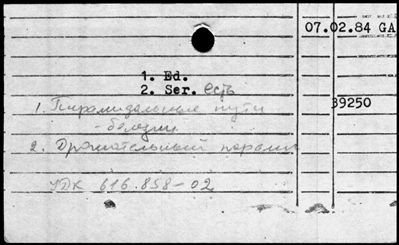 07.02.84 GA
1. Ed.
2. Ser. есть
1. Пирамидальные пути
39250
- болезни
2. Дрожательный паралич
УДК 616.858-02